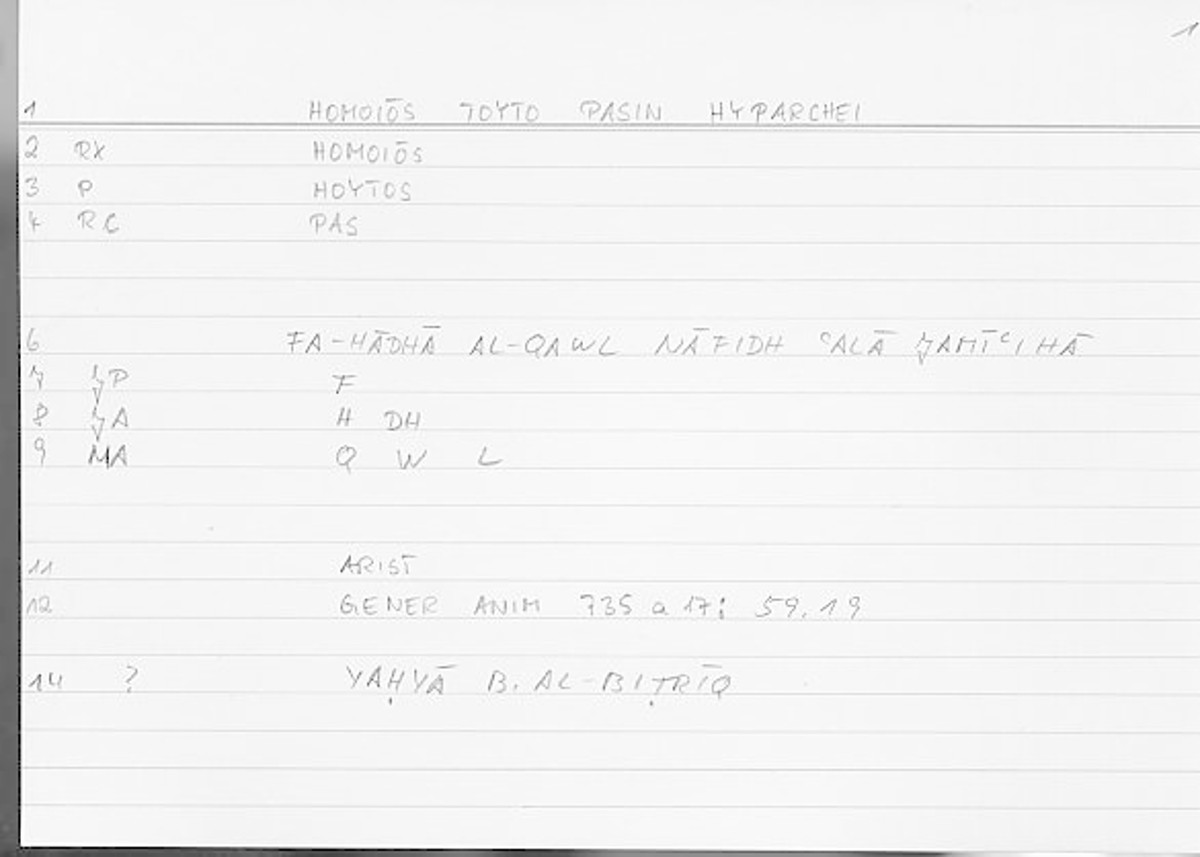 1
1 HOMOIŌS TOYTO PASIN HYPARCHEI
2 RX HOMOIŌS
3 P HOYTOS
4 RC PAS
6 FA-HĀDHĀ AL-QAWL NĀFIDH ʿALĀ ǦAMĪʿIHĀ
7 P F
8 A H DH
9 MA Q W L
11 ARIST
12 GENER ANIM 735 a 17; 59.19
14 ? YAḤYĀ B. AL-BIṬRĪQ